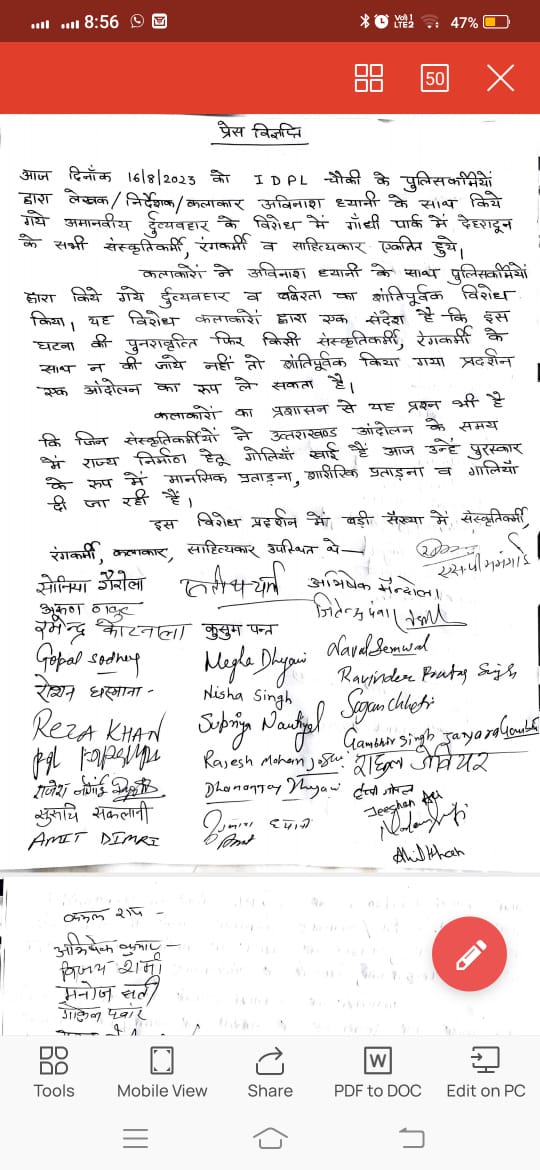 8:56
VoI) 1
LTE2
47%
50
प्रेस विज्ञप्ति
आज दिनाँक 16/8/2023 को IDPL चौकी के पुलिसकर्मियों
द्वारा लेखक/निर्देशक/कलाकार अविनाश ध्यानी के साथ किये
गये अमानवीय दुर्व्यवहार के विरोध में गाँधी पार्क में देहरादून
के सभी संस्कृतिकर्मी, रंगकर्मी व साहित्यकार एकत्रित हुये।
कलाकारों ने अविनाश ध्यानी के साथ पुलिसकर्मियों
द्वारा किये गये दुर्व्यवहार व बर्बरता का शांतिपूर्वक विरोध
किया, यह विरोध कलाकारों द्वारा एक संदेश है कि इस
घटना की पुनरावृत्ति फिर किसी संस्कृतिकर्मी, रंगकर्मी के
साथ न की जाये नहीं तो शांतिपूर्वक किया गया प्रदर्शन
एक आंदोलन का रूप ले सकता है।
कलाकारों का प्रशासन से यह प्रश्न भी है
कि जिन संस्कृतिकर्मियों ने उत्तराखण्ड आंदोलन के समय
में राज्य निर्माण हेतू गोलियाँ खाई हैं आज उन्हें पुरस्कार
के रूप में मानसिक प्रताड़ना, शारीरिक प्रताड़ना व गालियाँ
दी जा रही हैं।
इस विरोध प्रदर्शन में बड़ी सँख्या में संस्कृतिकर्मी,
रंगकर्मी, कलाकार, साहित्यकार उपस्थित थे—
सोनिया गैरोला
अभिषेक मैन्दोला
कुसुम पन्त
Naval Semwal
Gopal
Megha Dhyani
Ravjinder Singh
रोशन धस्माना
Nisha Singh
Sagan Chhetri
REZA KHAN
Supriya Nautiyal
Gambhir Singh Jayara
Rajesh Mohan
Dhananjay Dhyani
सुरुचि सकलानी
Jeeshan
AMIT DIMRI
Khan
अभिषेक कुमार
विजय शर्मा
मनोज सती
Tools
Mobile View
Share
W
PDF to DOC
Edit on PC